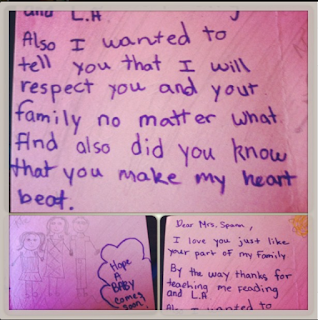 and L.A
Also I wanted to
tell you that I will
respect you and your
family no matter what
And also did you know
that you make my heart
beat.
Hope
A
BABY
comes
soon
Dear Mrs. Spann,
I love you just like
your part of my Family
By the way thanks for
teaching me reading
and L.A
Also I wanted to